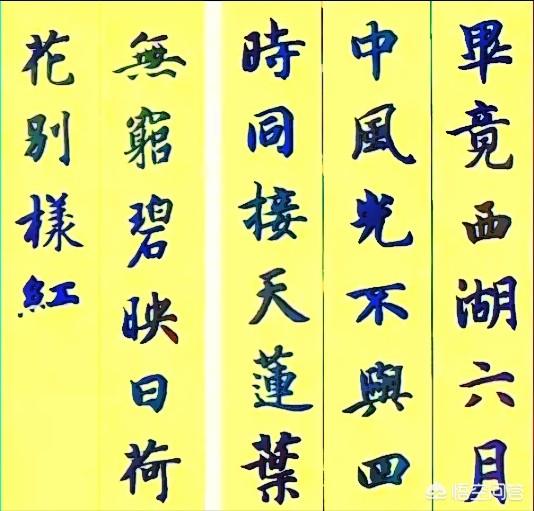 畢竟西湖六月
中風光不與四
時同接天蓮葉
無窮碧映日荷
花別樣紅
悟空问答